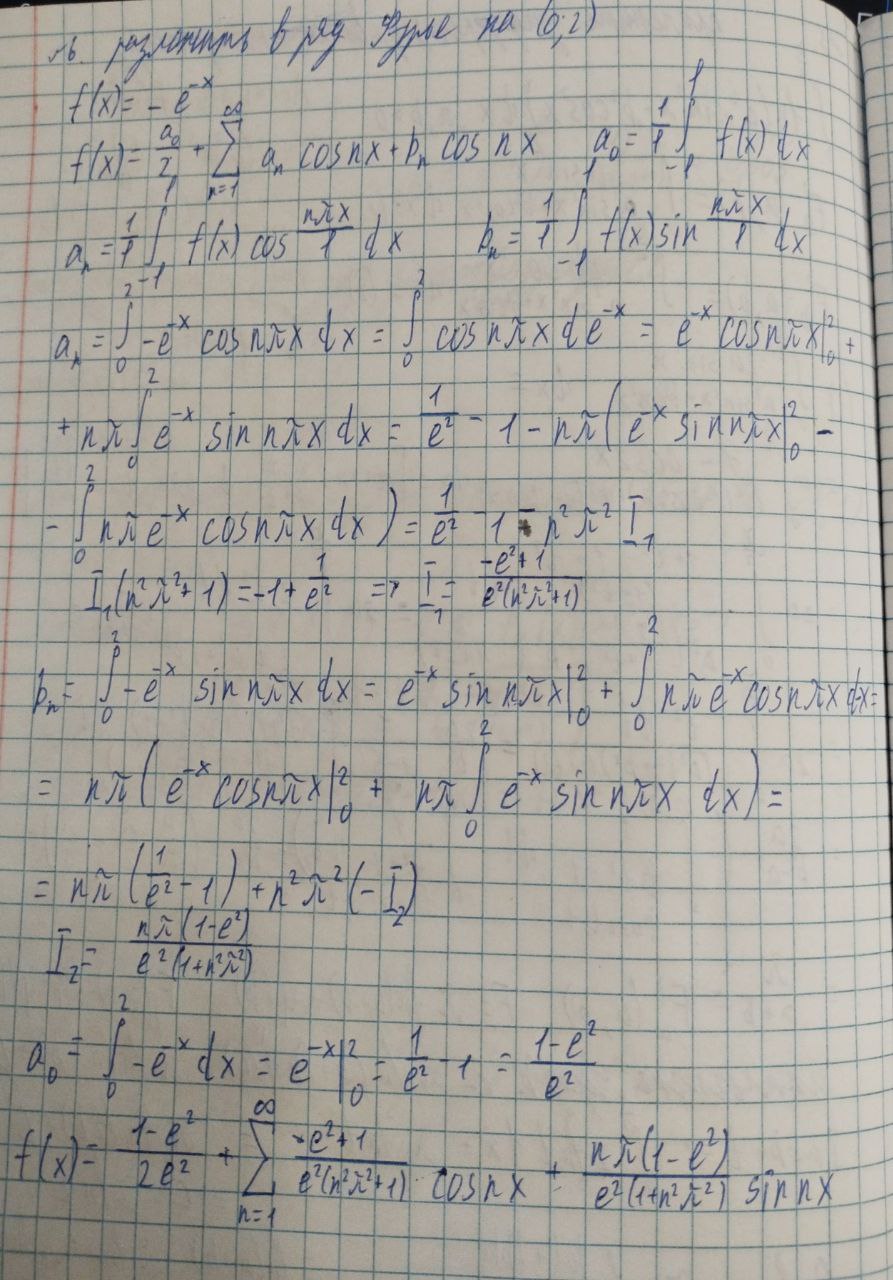 №6. разложить в ряд Фурье на (0;2)
f(x) = - e^{-x}
f(x) = a_0/2 + ∑_{n=1}^{∞} a_n cos nx + b_n cos nx   a_0 = 1/1 ∫_{-1}^{1} f(x) dx
a_n = 1/1 ∫_{-1}^{1} f(x) cos nπx/1 dx   b_n = 1/1 ∫_{-1}^{1} f(x) sin nπx/1 dx
a_n = ∫_0^2 -e^{-x} cos nπx dx = ∫_0^2 cos nπx de^{-x} = e^{-x} cos nπx|_0^2 +
+ nπ ∫_0^2 e^{-x} sin nπx dx = 1/e^2 - 1 - nπ( e^{-x} sin nπx|_0^2 -
- ∫_0^2 nπ e^{-x} cos nπx dx ) = 1/e^2 - 1 - n^2 π^2 I_1
I_1 (n^2π^2+1) = -1 + 1/e^2 => I_1 = (-e^2+1)/(e^2(n^2π^2+1))
b_n = ∫_0^2 -e^{-x} sin nπx dx = e^{-x} sin nπx|_0^2 + ∫_0^2 nπ e^{-x} cos nπx dx =
= nπ( e^{-x} cos nπx|_0^2 + nπ ∫_0^2 e^{-x} sin nπx dx ) =
= nπ (1/e^2 - 1) + n^2 π^2 (-I_2)
I_2 = nπ(1-e^2)/(e^2(1+n^2π^2))
a_0 = ∫_0^2 -e^{-x} dx = e^{-x}|_0^2 = 1/e^2 - 1 = (1-e^2)/e^2
f(x) = (1-e^2)/(2e^2) + ∑_{n=1}^{∞} (-e^2+1)/(e^2(n^2π^2+1)) · cos nx + nπ(1-e^2)/(e^2(1+n^2π^2)) sin nx